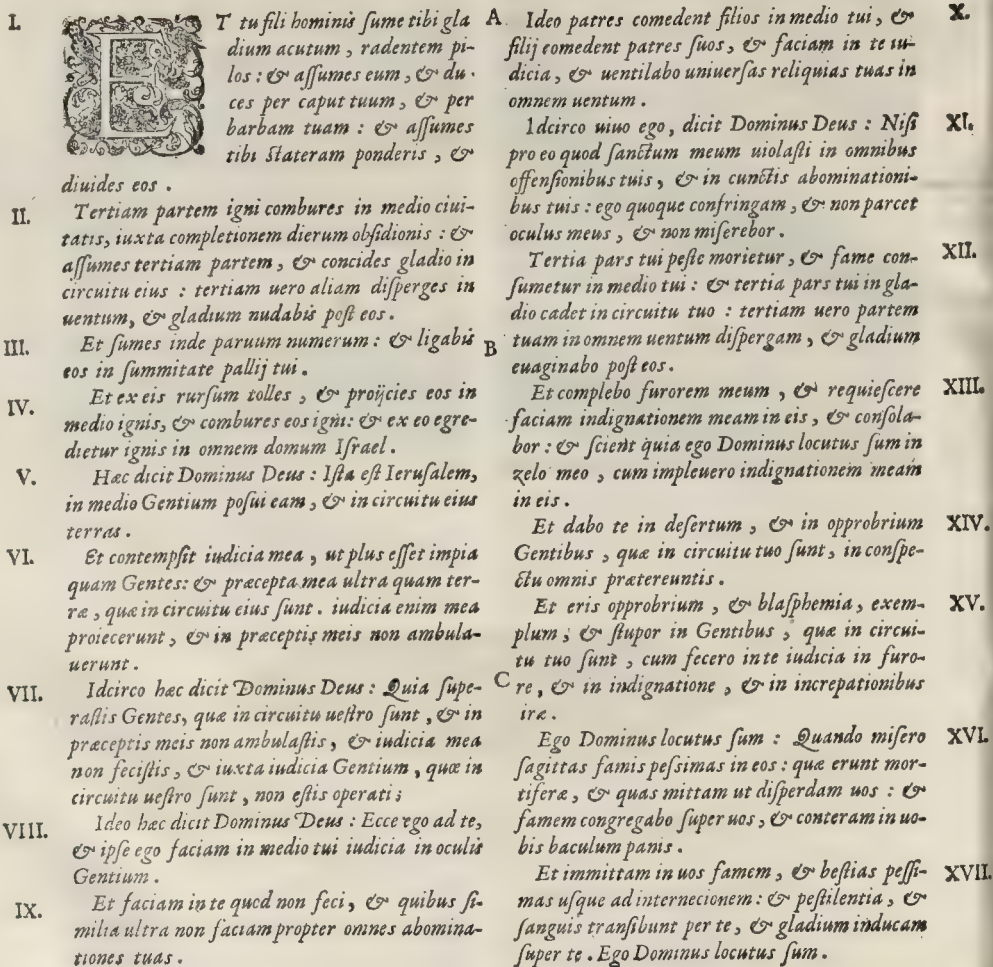 I. ET tu fili hominis ſume tibi gla
dium acutum, radentem pi-
los: & aſſumes eum, & du-
ces per caput tuum, & per
barbam tuam: & aſſumes
tibi ſtateram ponderis, &
diuides eos.
II. Tertiam partem igni combures in medio ciui-
tatis, iuxta completionem dierum obſidionis: &
aſſumes tertiam partem, & concides gladio in
circuitu eius: tertiam uero aliam diſperges in
uentum, & gladium nudabis poſt eos.
III. Et ſumes inde paruum numerum: & ligabis
eos in ſummitate pallij tui.
IV. Et ex eis rurſum tolles, & proijcies eos in
medio ignis, & combures eos igni: & ex eo egre-
dietur ignis in omnem domum Iſrael.
V. Hæc dicit Dominus Deus: Iſta eſt Ieruſalem,
in medio Gentium poſui eam, & in circuitu eius
terras.
VI. Et contempſit iudicia mea, ut plus eſſet impia
quam Gentes: & præcepta mea ultra quam ter-
ræ, quæ in circuitu eius ſunt. iudicia enim mea
proiecerunt, & in præceptis meis non ambula-
uerunt.
VII. Idcirco hæc dicit Dominus Deus: Quia ſupe-
raſtis Gentes, quæ in circuitu ueſtro ſunt, & in
præceptis meis non ambulaſtis, & iudicia mea
non feciſtis, & iuxta iudicia Gentium, quæ in
circuitu ueſtro ſunt, non eſtis operati;
VIII. Ideo hæc dicit Dominus Deus: Ecce ego ad te,
& ipſe ego faciam in medio tui iudicia in oculis
Gentium.
IX. Et faciam in te quod non feci, & quibus ſi-
milia ultra non faciam propter omnes abomina-
tiones tuas.
A Ideo patres comedent filios in medio tui, & X.
filij comedent patres ſuos, & faciam in te iu-
dicia, & uentilabo uniuerſas reliquias tuas in
omnem uentum.
Idcirco uiuo ego, dicit Dominus Deus: Niſi XI.
pro eo quod ſanctum meum uiolaſti in omnibus
offenſionibus tuis, & in cunctis abominationi-
bus tuis: ego quoque confringam, & non parcet
oculus meus, & non miſerebor.
Tertia pars tui peſte morietur, & fame con- XII.
ſumetur in medio tui: & tertia pars tui in gla-
dio cadet in circuitu tuo: tertiam uero partem
B tuam in omnem uentum diſpergam, & gladium
euaginabo poſt eos.
Et complebo furorem meum, & requieſcere XIII.
faciam indignationem meam in eis, & conſola-
bor: & ſcient quia ego Dominus locutus ſum in
zelo meo, cum impleuero indignationem meam
in eis.
Et dabo te in deſertum, & in opprobrium XIV.
Gentibus, quæ in circuitu tuo ſunt, in conſpe-
ctu omnis prætereuntis.
Et eris opprobrium, & blaſphemia, exem- XV.
plum, & ſtupor in Gentibus, quæ in circui-
tu tuo ſunt, cum fecero in te iudicia in furo-
C re, & in indignatione, & in increpationibus
iræ.
Ego Dominus locutus ſum: Quando miſero XVI.
ſagittas famis peſsimas in eos: quæ erunt mor-
tiferæ, & quas mittam ut diſperdam uos: &
famem congregabo ſuper uos, & conteram in uo-
bis baculum panis.
Et immittam in uos famem, & beſtias peſſi- XVII.
mas uſque ad internecionem: & peſtilentia, &
ſanguis tranſibunt per te, & gladium inducam
ſuper te. Ego Dominus locutus ſum.